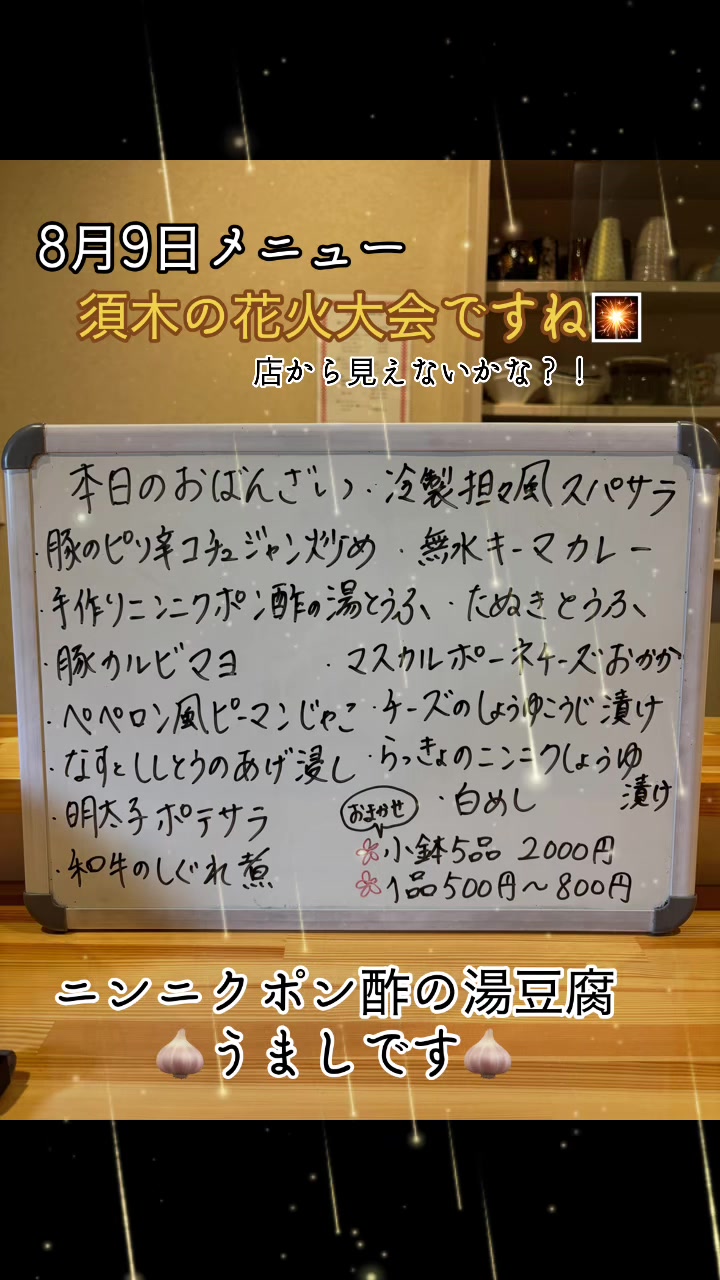 8月9日メニュー
須木の花火大会ですね🎇
店から見えないかな？！
本日のおばんざい
・冷製担々風スパサラ
・豚のピリ辛コチュジャン炒め
・無水キーマカレー
・手作りニンニクポン酢の湯とうふ
・たぬきとうふ
・豚カルビマヨ
・マスカルポーネチーズおかか
・ペペロン風ピーマンじゃこ
・チーズのしょうゆこうじ漬け
・なすとししとうのあげ浸し
・らっきょのニンニクしょうゆ
漬け
・明太子ポテサラ
・白めし
・和牛のしぐれ煮
おまかせ
小鉢5品 2000円
1品500円～800円
ニンニクポン酢の湯豆腐
🧄うましです🧄